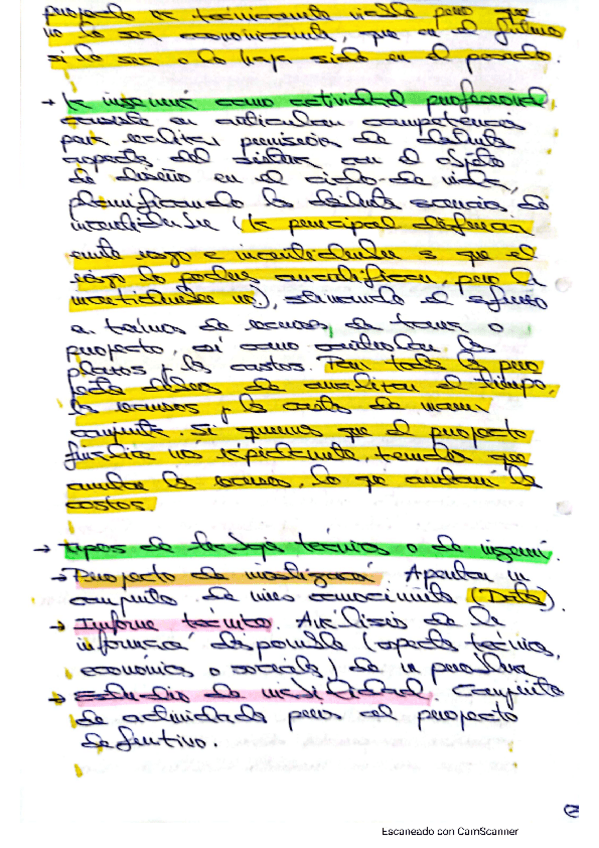 proyecto es técnicamente viable pero que
no lo sea económicamente, que en el futuro
sí lo sea o lo haya sido en el pasado.
→ La ingeniería como actividad profesional
consiste en articular competencias
para realizar de distintos
aspectos del sistema con el objeto
de diseño en el ciclo de vida,
planificando los distintos escenarios de
incertidumbre (la principal diferencia
entre riesgo e incertidumbre es que el
riesgo lo podemos cuantificar, pero la
incertidumbre no), estimando el esfuerzo
a términos de recursos, de tarea o
proyecto, así como los
plazos y los costos. Para todo lo
debemos de analizar el tiempo,
los recursos y los costos de manera
conjunta. Si queremos que el proyecto
finalice más rápidamente, tenemos que
aumentar los recursos, lo que aumentará los
costos.
→ Tipos de trabajo técnico o de ingeniería.
→ Proyecto de investigación. Aportan un
conjunto de unos conocimientos (Datos).
→ Informe técnico. Análisis de la
información disponible (aspectos técnicos,
económicos o sociales) de un problema
→ Estudio de viabilidad. Conjunto
de actividades para el proyecto
definitivo.
Escaneado con CamScanner